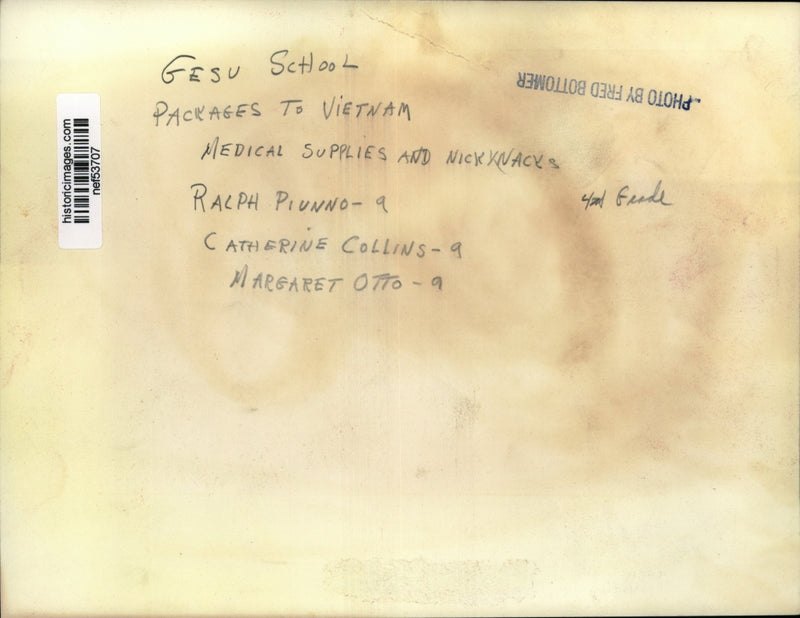 GESU SCHOOL
PHOTO BY FRED BOTTOMER
PACKAGES TO VIETNAM
MEDICAL SUPPLIES AND NICKKNACKS
RALPH PIUNNO - 9
Grade
CATHERINE COLLINS - 9
MARGARET OTTO - 9
historicimages.com
nef53707